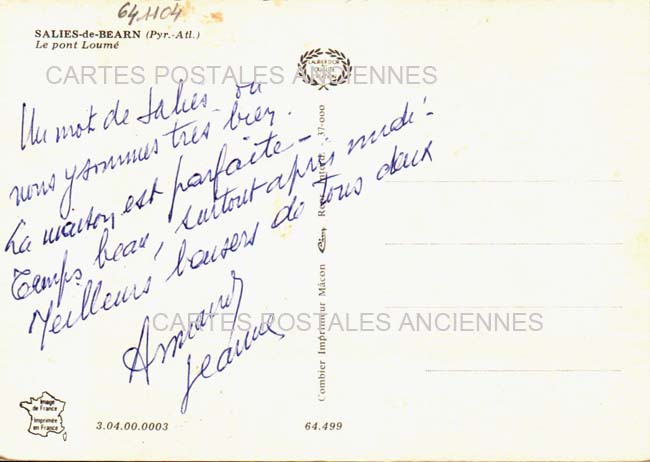 64 1104
SALIES-de-BEARN (Pyr.-Atl.)
Le pont Loumé
CARTES POSTALES ANCIENNES
Un mot de Salies - ou
nous y sommes très bien.
La maison est parfaite -
Temps beau, surtout après midi -
Meilleurs baisers de tous deux
Armand
Jeanne
CARTES POSTALES ANCIENNES
Combier Imprimeur Mâcon
37-000
Image
de France
Imprimée
en France
3.04.00.0003
64.499